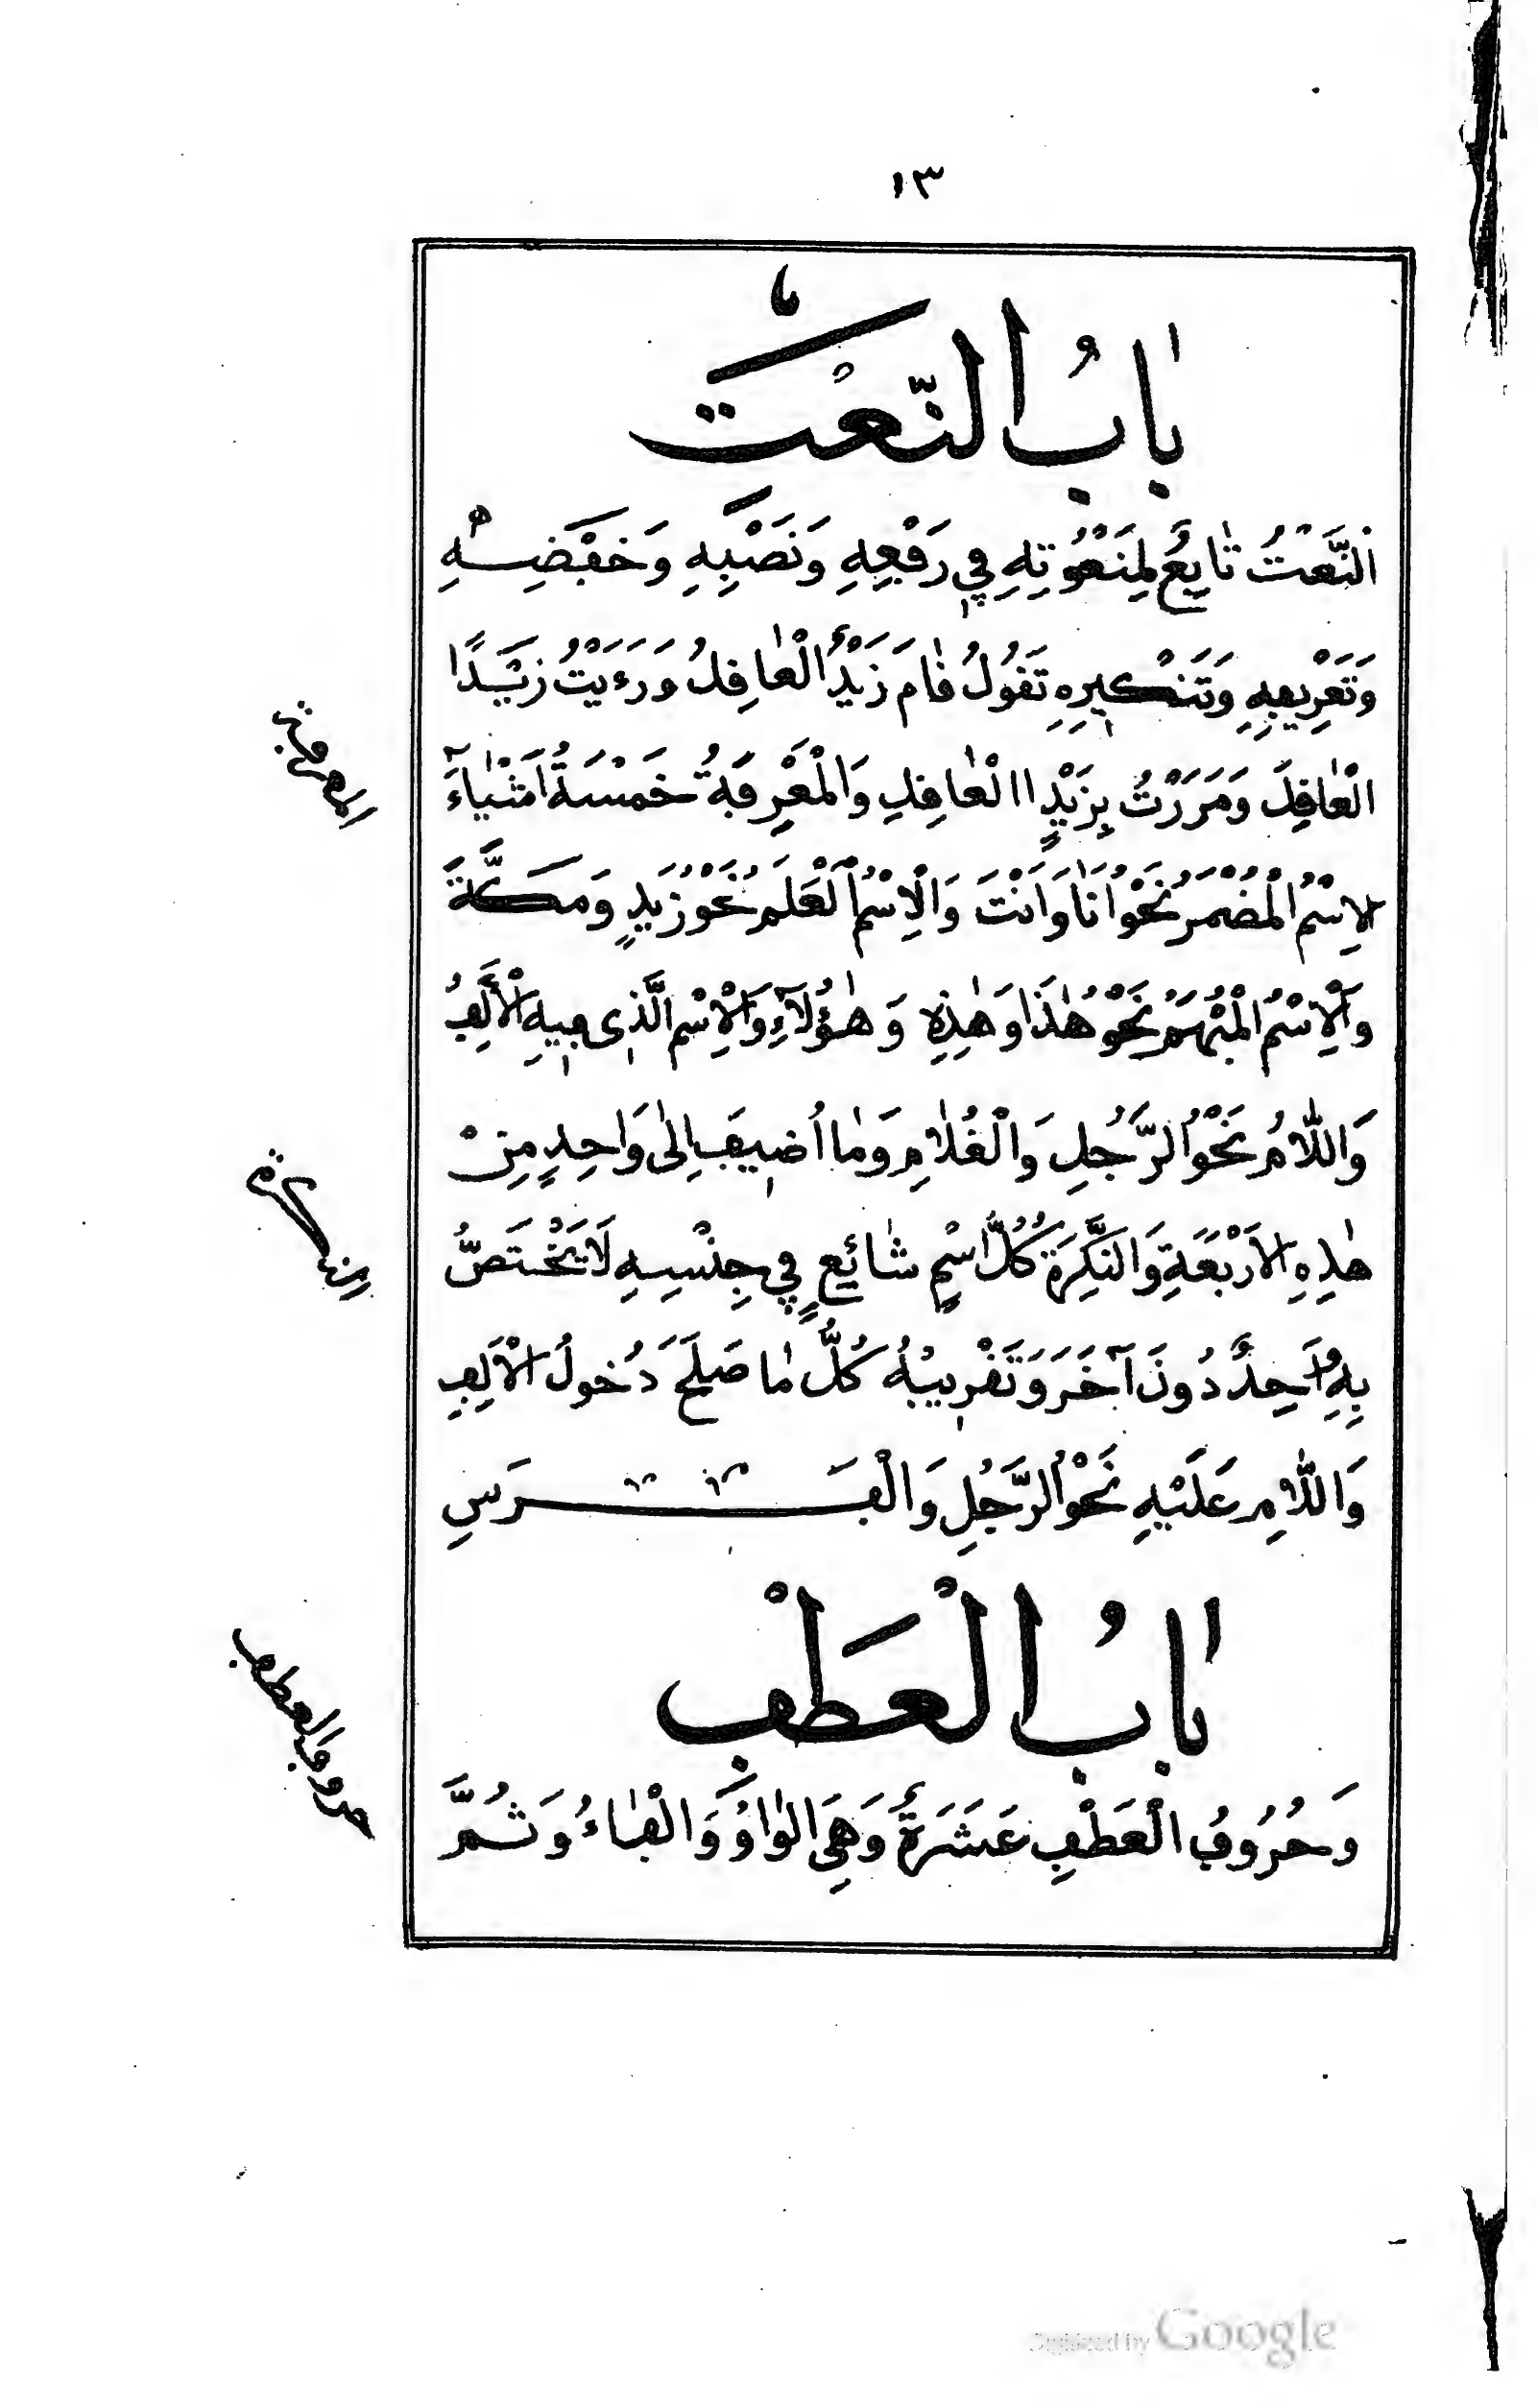 ١٣
بَابُ النَّعْتِ
اَلنَّعْتُ تَابِعٌ لِمَنْعُوتِهِ فِي رَفْعِهِ وَنَصْبِهِ وَخَفْضِهِ
وَتَعْرِيفِهِ وَتَنْكِيرِهِ تَقُولُ قَامَ زَيْدٌ الْعَاقِلُ وَرَءَيْتُ زَيْدًا
الْعَاقِلَ وَمَرَرْتُ بِزَيْدٍ االْعَاقِلِ وَالْمَعْرِفَةُ خَمْسَةُ اَشْيَاءَ
الِاسْمُ الْمُضْمَرُ نَحْوُ اَنَا وَاَنْتَ وَالْاِسْمُ الْعَلَمُ نَحْوُ زَيْدٍ وَمَكَّةَ
وَالْاِسْمُ الْمُبْهَمُ نَحْوُ هٰذَا وَهٰذِهِ وَهٰؤُلَاءِ وَالْاِسْمُ الَّذِى فِيهِ الْأَلِفُ
وَاللَّامُ نَحْوُ الرَّجُلِ وَالْغُلَامِ وَمَا اُضِيفَ اِلٰى وَاحِدٍ مِنْ
هٰذِهِ الْاَرْبَعَةِ وَالنَّكِرَةُ كُلُّ اسْمٍ شَائِعٍ فِي جِنْسِهِ لَا يَخْتَصُّ
بِهِ وَاحِدٌ دُونَ آخَرَ وَتَقْرِيبُهُ كُلُّ مَا صَلَحَ دُخُولُ الْاَلِفِ
وَاللَّامِ عَلَيْهِ نَحْوُ الرَّجُلِ وَالْفَرَسِ
بَابُ الْعَطْفِ
وَحُرُوفُ الْعَطْفِ عَشَرَةٌ وَهِىَ الْوَاوُ وَالْفَاءُ وَثُمَّ
المعرفة
النكرة
حروف العطف
Digitized by Google